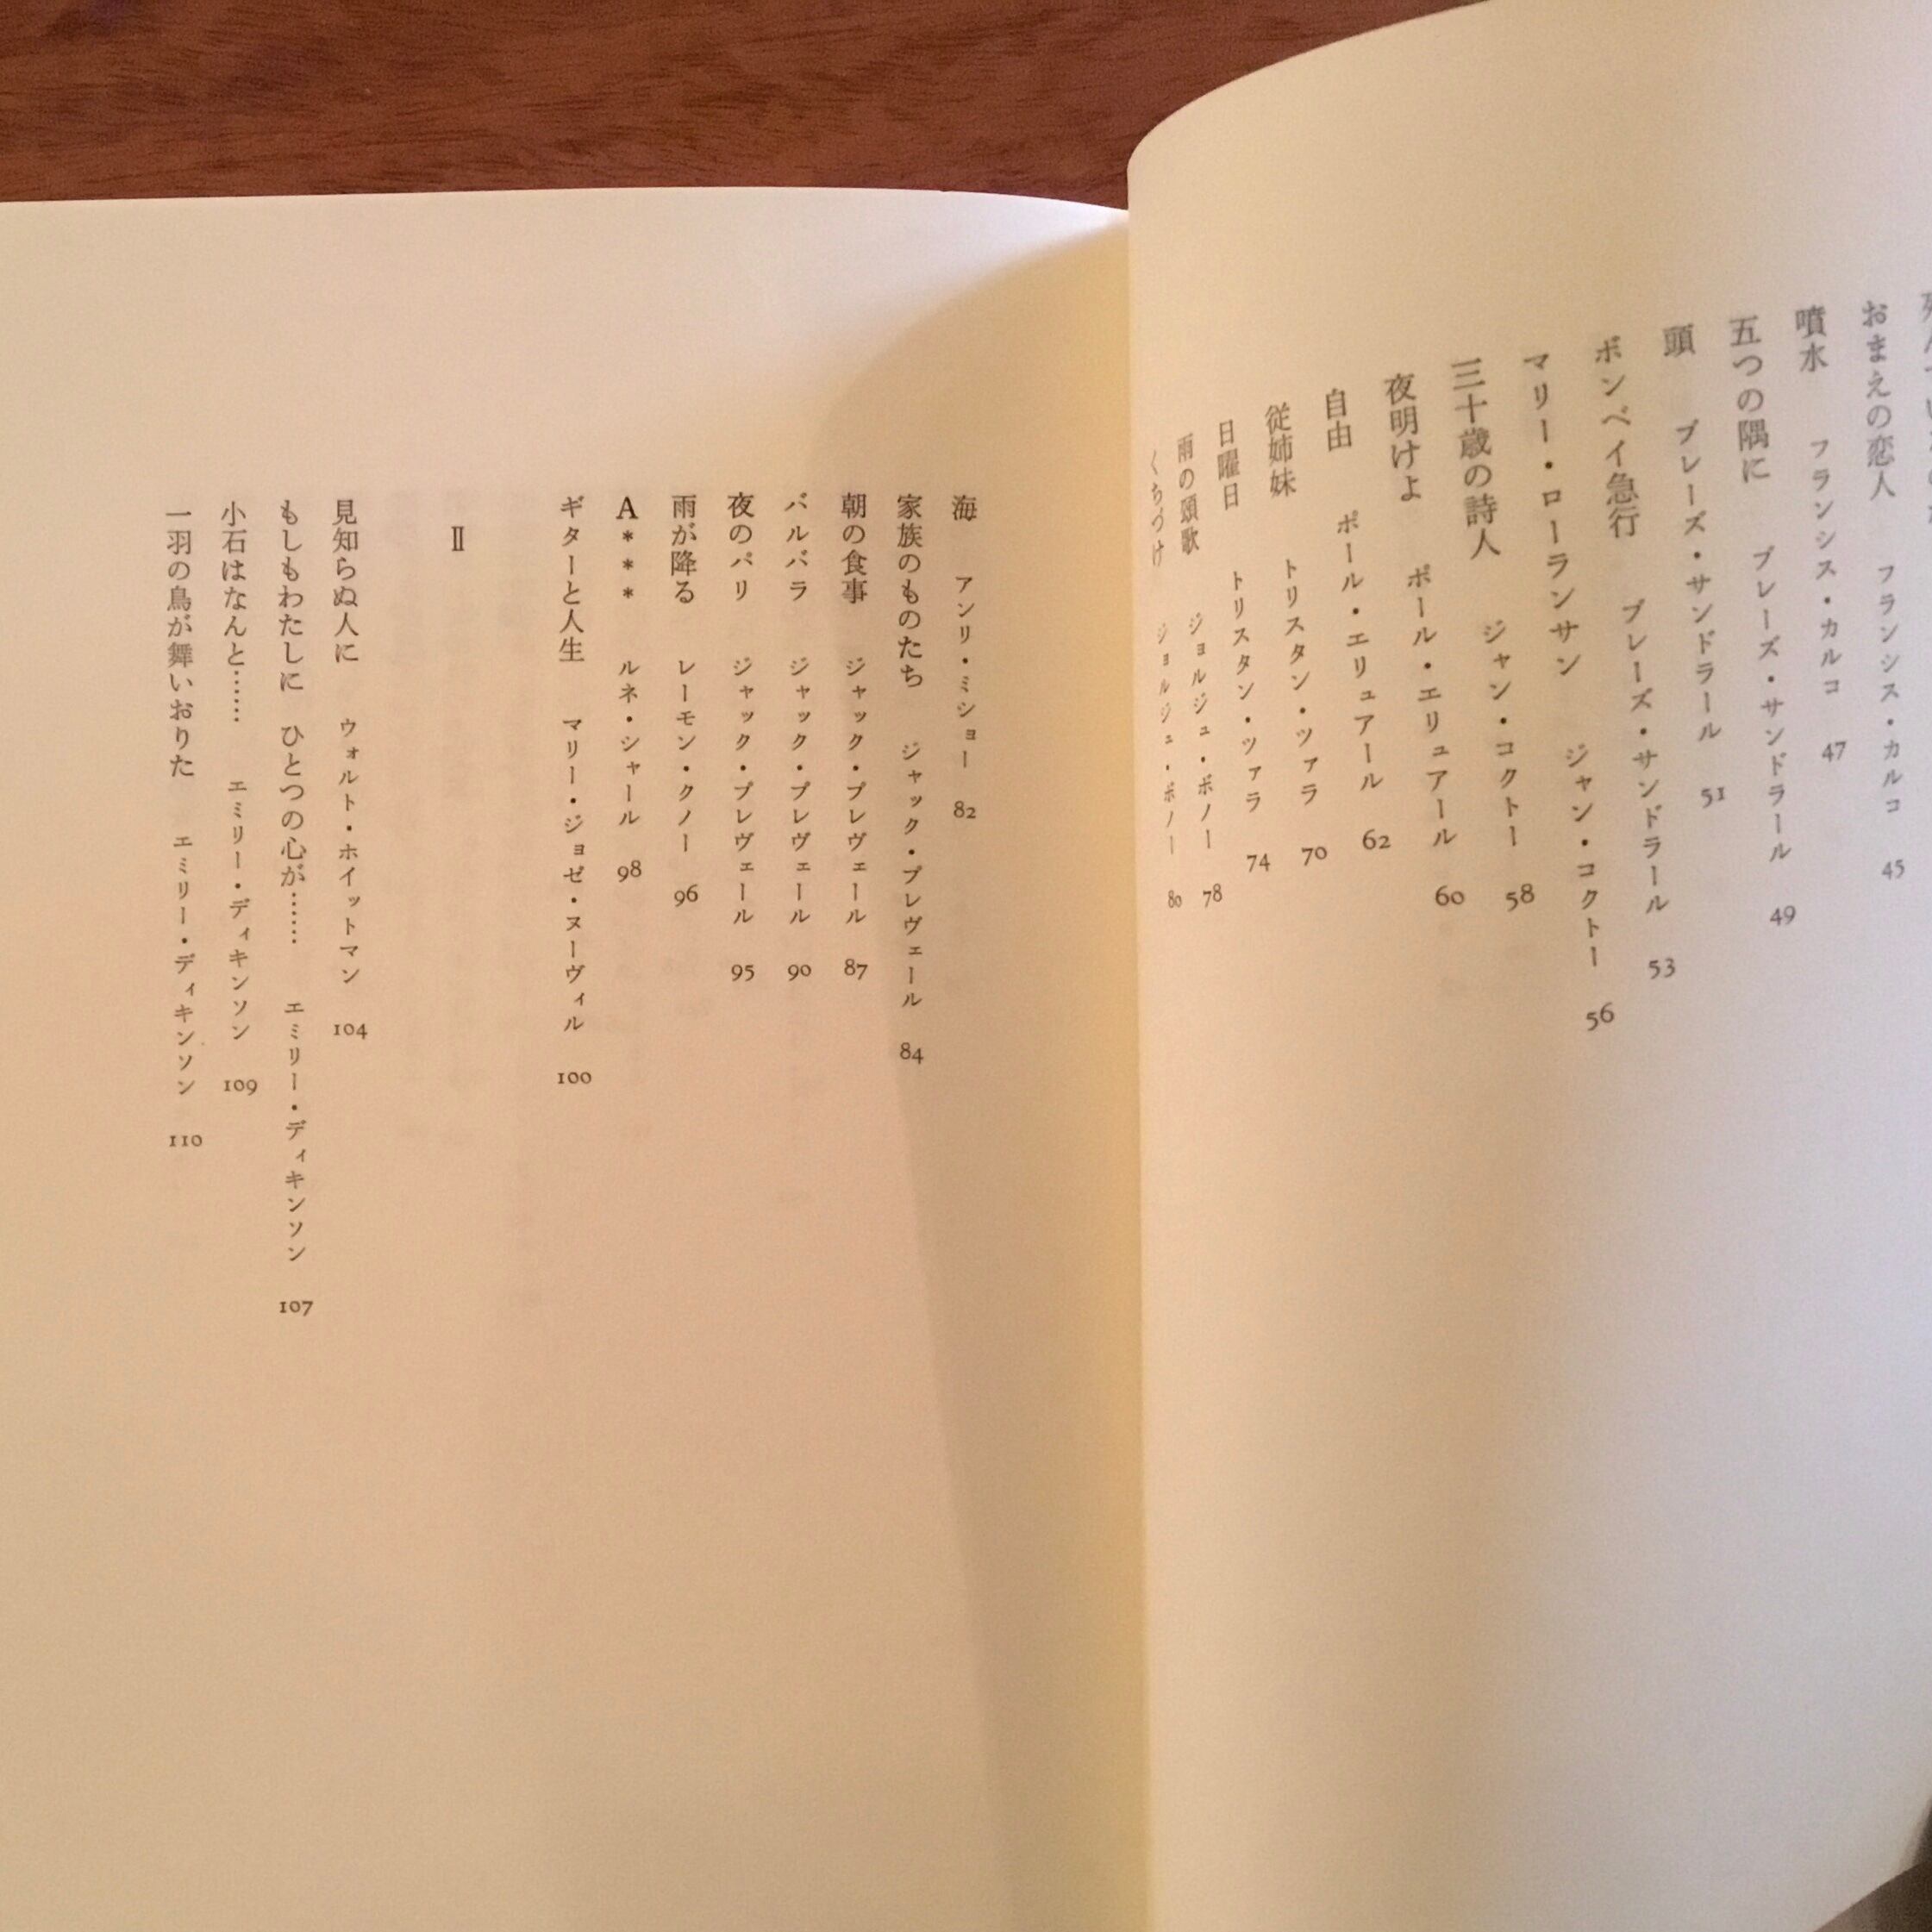 おまえの恋人 フランシス・カルコ 45
噴水 フランシス・カルコ 47
五つの隅に ブレーズ・サンドラール 49
頭 ブレーズ・サンドラール 51
ボンベイ急行 ブレーズ・サンドラール 53
マリー・ローランサン ジャン・コクトー 56
三十歳の詩人 ジャン・コクトー 58
夜明けよ ポール・エリュアール 60
自由 ポール・エリュアール 62
従姉妹 トリスタン・ツァラ 70
日曜日 トリスタン・ツァラ 74
雨の頌歌 ジョルジュ・ボノー 78
くちづけ ジョルジュ・ボノー 80
海 アンリ・ミショー 82
家族のものたち ジャック・プレヴェール 84
朝の食事 ジャック・プレヴェール 87
バルバラ ジャック・プレヴェール 90
夜のパリ ジャック・プレヴェール 95
雨が降る レーモン・クノー 96
A*** ルネ・シャール 98
ギターと人生 マリー・ジョゼ・ヌーヴィル 100
Ⅱ
見知らぬ人に ウォルト・ホイットマン 104
もしもわたしに ひとつの心が…… エミリー・ディキンソン 107
小石はなんと…… エミリー・ディキンソン 109
一羽の鳥が舞いおりた エミリー・ディキンソン 110